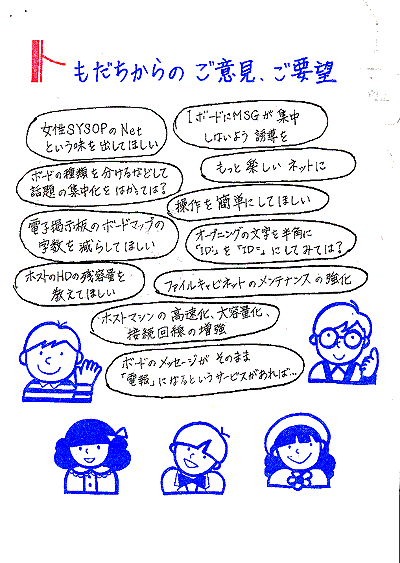 ともだちからの ご意見、ご要望
女性SYSOPのNet
という味を出してほしい
1ボードにMSGが集中
しないよう 誘導を
ボードの種類を分けるなどして
話題の集中化を はかっては?
もっと 楽しい ネットに
操作を簡単にしてほしい
電子掲示板のボードマップの
字数を減らしてほしい
オープニングの文字を半角に
「ID:」を「ID=」にしてみては?
ホストのHDの残容量を
教えてほしい
ファイルキャビネットのメンテナンスの強化
ホストマシンの高速化、大容量化、
接続回線の増強
ボードのメッセージが そのまま
「電報」になるというサービスがあれば…